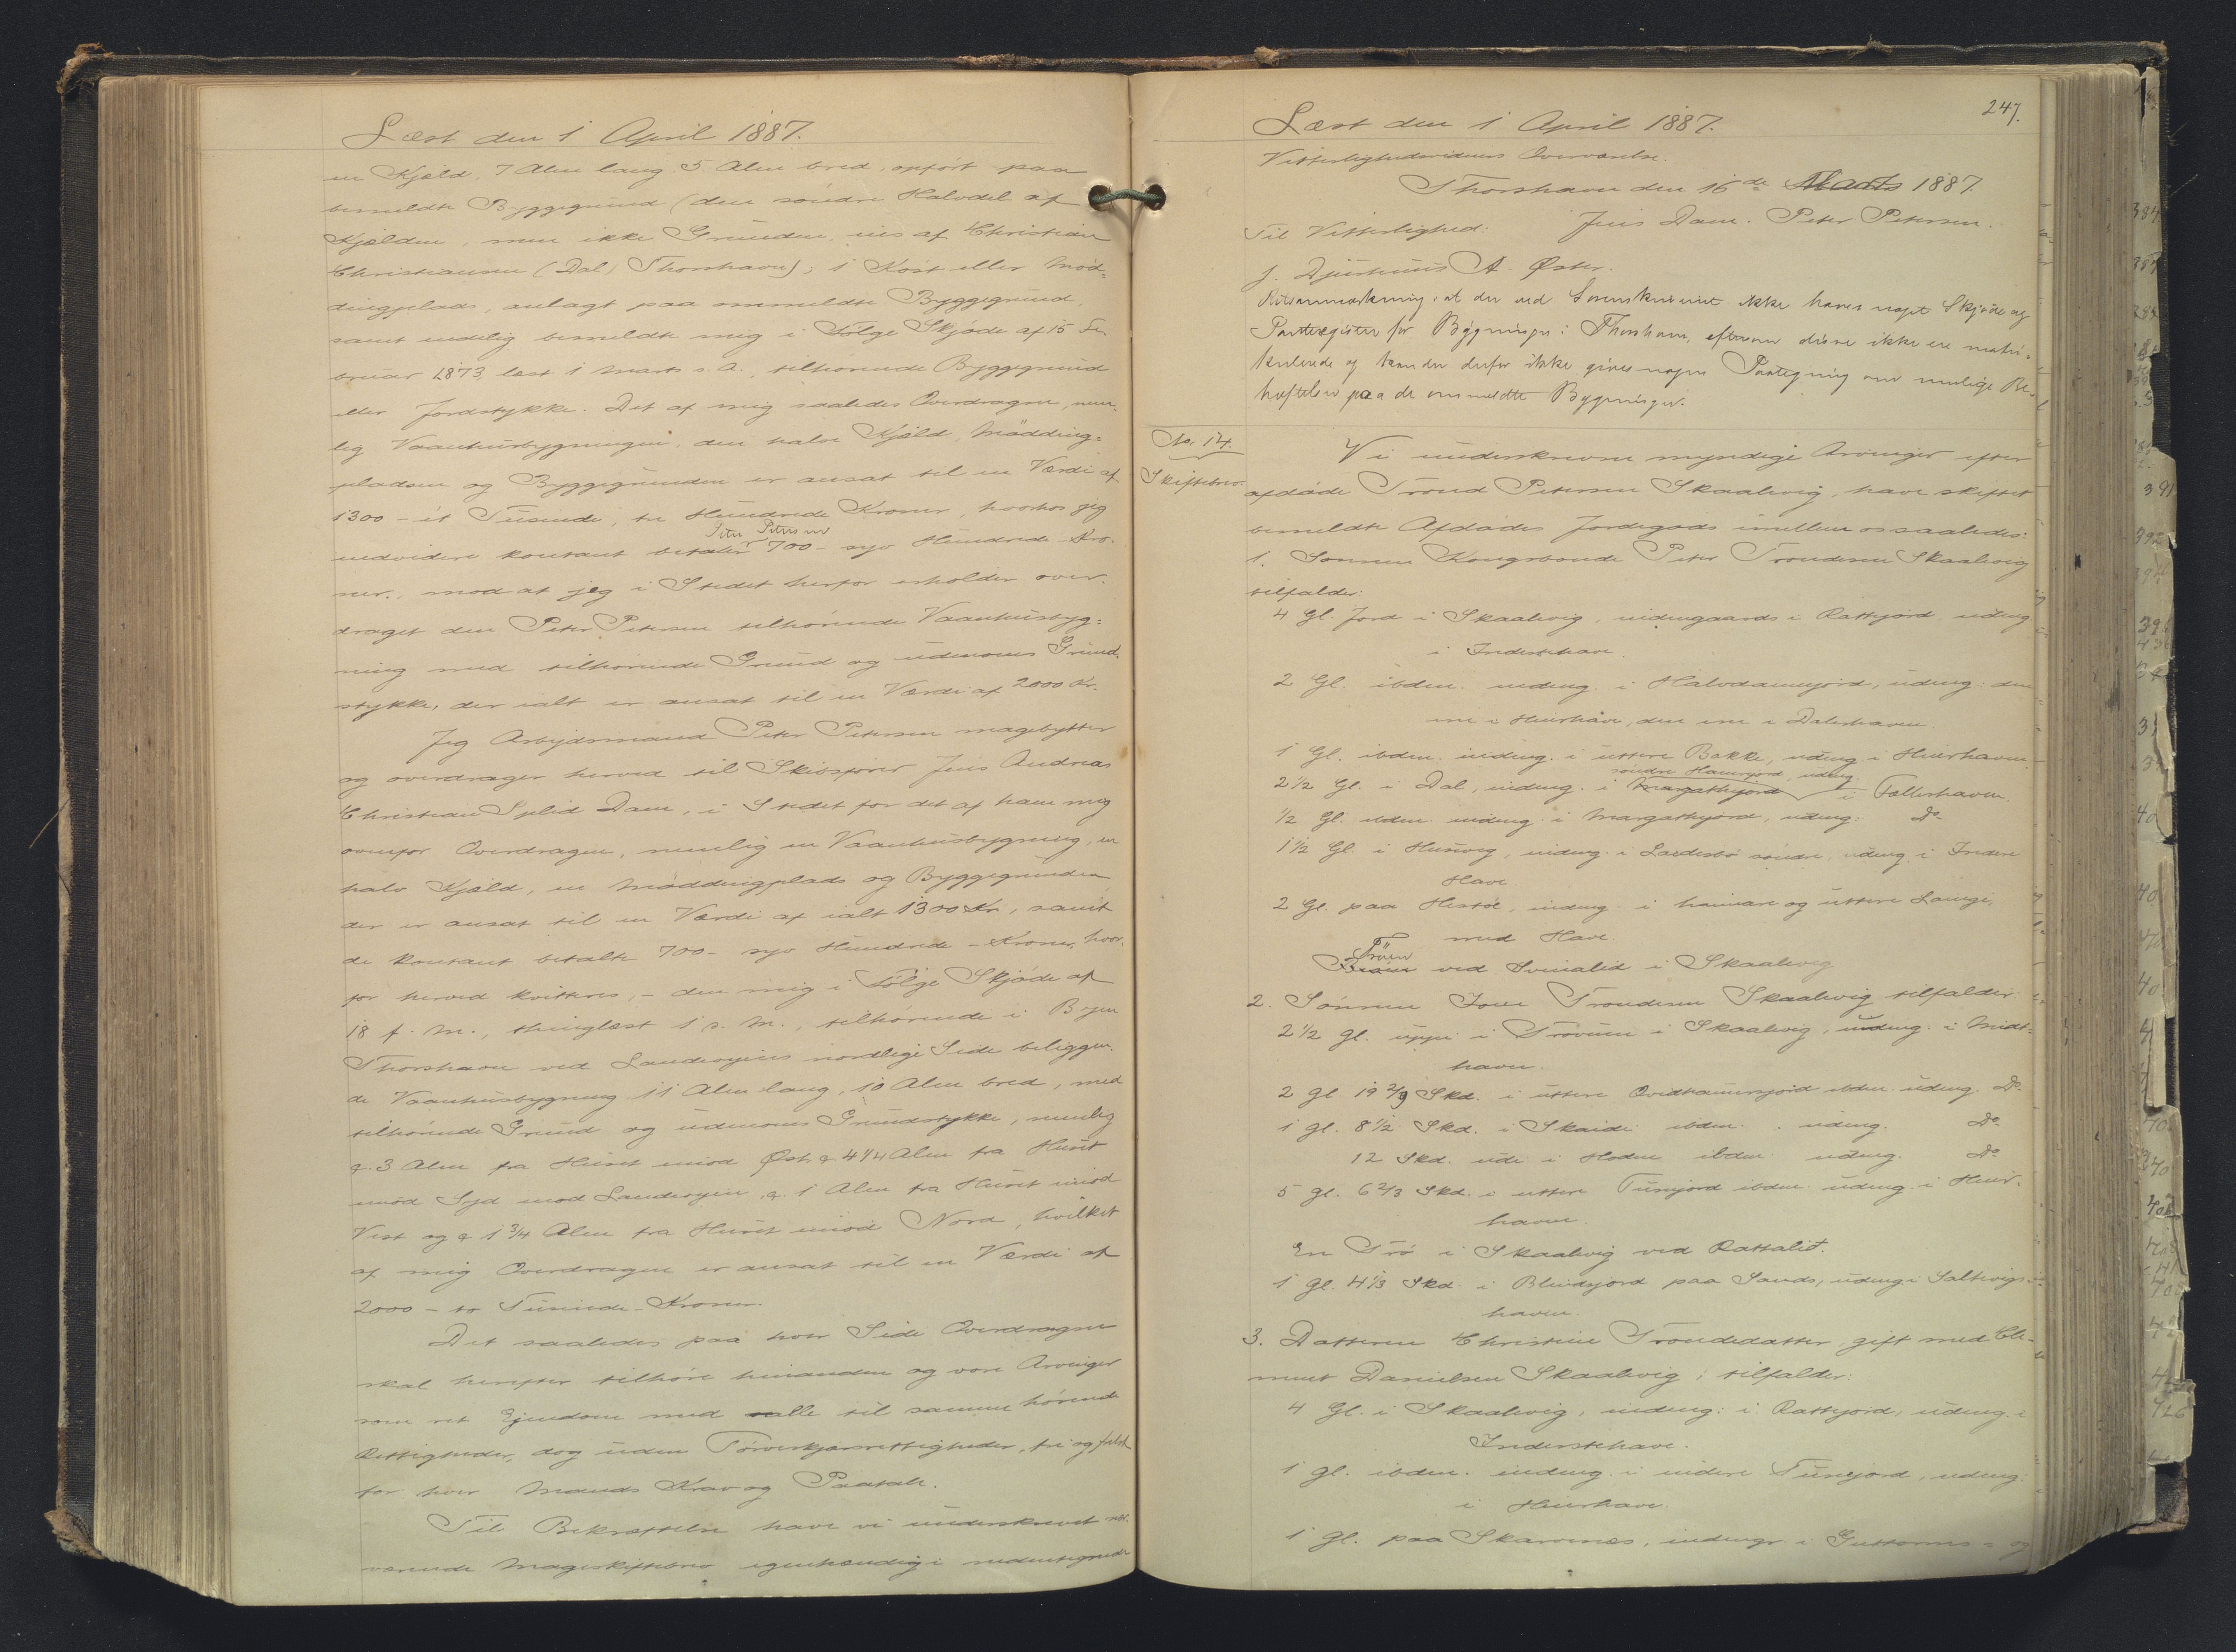 Læst den 1 April 1887.
en Kjæld, 7 Alen lang, 5 Alen bred, opført paa
bemeldte Byggegrund (den søndre Halvdel af
Kjælden, men ikke Grunden, eies af Christian
Christiansen (Dal, Thorshavn), 1 Kost eller Mød-
dingplads, anlagt paa ommeldte Byggegrund,
samt endelig bemeldte mig i Følge Skjøde af 15 Fe-
bruar 1873, læst 1 Marts s. A., tilhørende Byggegrund
eller Jordstykke. Det af mig saaledes Overdragne, nem-
lig Vaanhusbygningen, den halve Kjæld, Mødding-
pladsen og Byggegrunden er ansat til en Værdi af
1300 - et Tusinde, tre Hundrede Kroner, hvorhos jeg
Peter Petersen
endvidere kontant betaler 700 - syv Hundrede - Kro-
ner, mod at jeg i Stedet herfor erholder over-
draget den Peter Petersen tilhørende Vaanhusbyg-
ning med tilhørende Grund og udenoms Grund-
stykke, der ialt er ansat til en Værdi af 2000 Kr.
Jeg Arbejdsmand Peter Petersen magebytter
og overdrager herved til Skibsfører Jens Andreas
Christian Splid Dam, i Stedet for det af ham mig
ovenfor Overdragne, nemlig en Vaanhusbygning, en
halv Kjæld, en Møddingplads og Byggegrunden
der er ansat til en Værdi af ialt 1300 Kr, samt
de kontant betalte 700 - syv Hundrede - Kroner, hvor-
for herved kvitteres, - den mig i Følge Skjøde af
18 f. M., thinglæst 1 s. M., tilhørende i Byen
Thorshavn ved Landevejens nordlige Side beliggen-
de Vaanhusbygning 11 Alen lang, 10 Alen bred, med
tilhørende Grund og udenoms Grundstykke, nemlig
q. 3 Alen fra Huset imod Øst, q. 4 1/4 Alen fra Huset
imod Syd mod Landevejen, q. 1 Alen fra Huset imod
Vest og q 1 3/4 Alen fra Huset imod Nord, hvilket
af mig Overdragne er ansat til en Værdi af
2000 - to Tusinde - Kroner.
Det saaledes paa hver Side Overdragne
skal herefter tilhøre hinanden og vore Arvinger
som ret Ejendom med alle til samme hørende
Rettigheder, dog uden Tørveskjærsrettigheder, fri og frelst
for hver Mands Krav og Paatale.
Til Bekræftelse have vi underskrevet nær-
værende Mageskiftebrev egenhændig i undertegnede
247.
Læst den 1 April 1887.
Vitterlighedsvidners Overværelse.
Thorshavn den 16de Marts 1887.
Jens Dam. Peter Petersen.
Til Vitterlighed:
J. Djurhuus A. Øster.
Retsanmærkning: at der ved Sorenskriveriet ikke haves noget Skjøde og
Panteregister for Bygninger i Thorshavn, eftersom disse ikke ere matri-
kulerede og kan der derfor ikke gives nogen Paategning om mulige Be-
hæftelser paa de ommeldte Bygninger.
No. 14.
Skiftebrev.
Vi underskrevne myndige Arvinger efter
afdøde Trond Petersen Skaalevig, have skiftet
bemeldte Afdødes Jordegods imellem os saaledes:
1. Sønnen Kongsbonde Peter Trondesen Skaalevig
tilfalder:
4 Gl. Jord i Skaalevig, indengaards i Rattjord, udeng
i Inderstehave.
2 Gl. ibdem. indeng. i Halvdannjord, udeng. den
ene i Heürhave, den ene i Dalerhaven.
1 Gl. ibdem. indeng. i uttere Bakke, udeng i Heurhaven
søndre Hamrjord, udeng.
2 1/2 Gl. i Dal, indeng. i Margathjord i Fællerhaven.
1/2 Gl. ibdem indeng i Margathjord, udeng: Do
1 1/2 Gl. i Husevig, indeng. i søndre, udeng. i Indere
Have
2 Gl. paa Hestøe, indeng i og uttere Langi,
med Have.
Tröen
ved Svinalid i Skaalevig
2. Sønnen Joen Trondesen Skaalevig tilfalder:
2 1/2 Gl. uppe i Trøvum i Skaalevig, udeng. i Midt-
haven.
2 Gl. 19 2/9 Skd. i uttere Qvidhamrsjord ibdem udeng. Do
1 Gl. 8 1/2 Skd. i Skaidi ibdem. udeng. Do
12 Skd. udi i Hodne ibdem udeng. Do
5 Gl. 6 2/3 Skd. i uttere Tunjord ibdem udeng. i Heur-
haven.
En Trö i Skaalevig ved Rattalid.
1 Gl. 4 1/3 Skd. i Blindsjord paa Sands, udeng i Saltvigs-
haven.
3. Datteren Christine Trondedatter, gift med Cle-
ment Danielsen Skaalevig, tilfalder:
4 Gl. i Skaalevig, indeng: i Rattjord, udeng. i
Inderstehave.
1 Gl. ibdem. indeng. i indere Tunjord, udeng.
i Heurhave.
1 Gl. paa Skarvenæs, indeng. i Guttorms- og